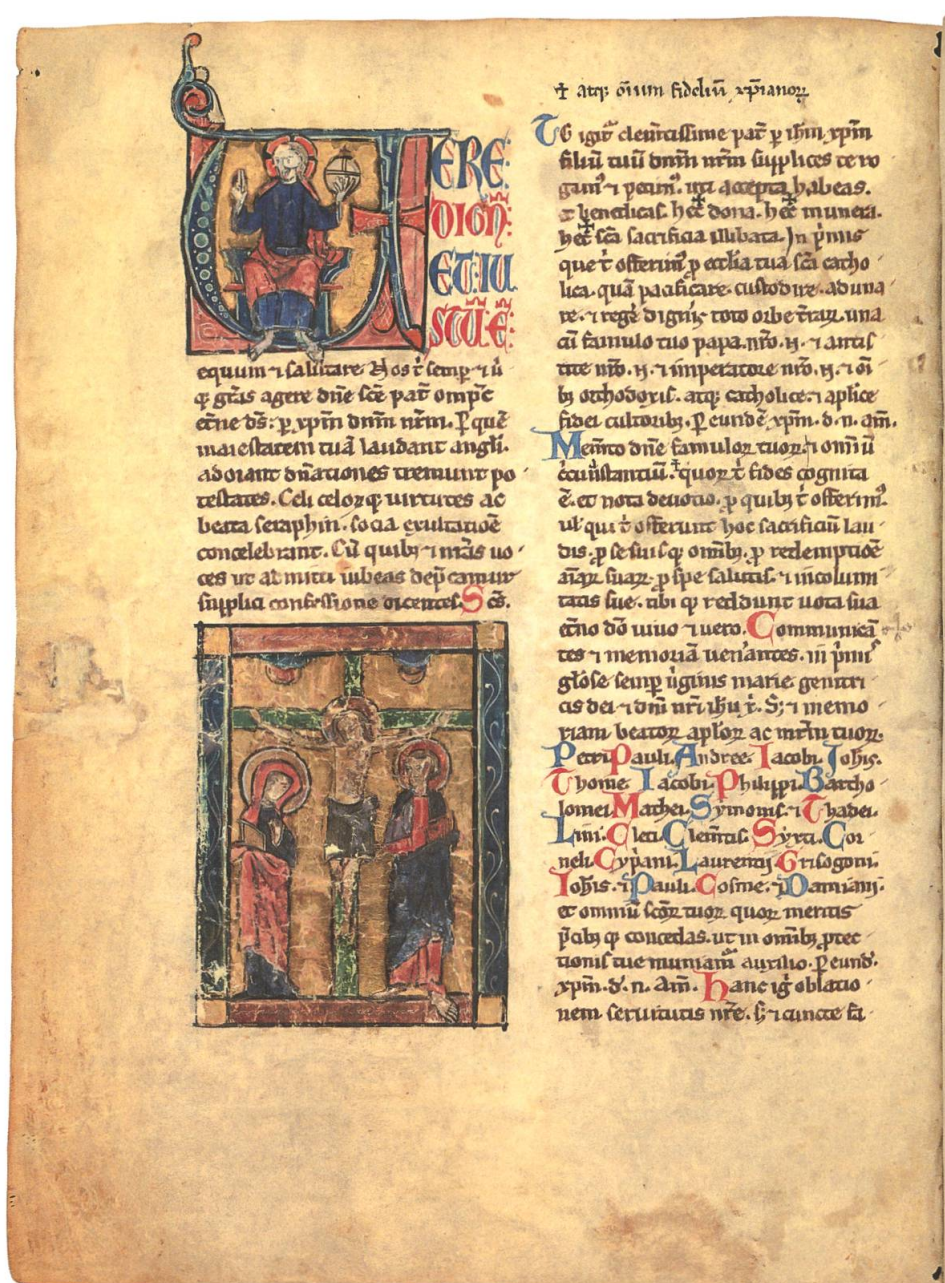 UERE:
DIGN̄:
ET: IU
STŪ: Ē:
equum ⁊ salutare. Nos t̄ semp̲ ⁊ ū
q; gr̄as agere dn̄e sc̄e pat̄ omp̄c
et̄ne ds̄: p̲ xp̄m dnm̄ nrm̄. P̲ quē
maiestatem tuā laudant angl̄i.
adorant dn̄ationes tremunt po
testates. Celi celorq; virtutes ac
beata seraphin. socia exultatiōe
concelebrant. Cū quib; ⁊ nr̄as uo
ces ut admitti iubeas dep̄camur
supplici confessione dicentes. Sc̄s.
✝ atq; ōium fideliū xp̄ianoꝝ
TE igit̄ clem̄tissime pat̄ p̲ ih̄m xp̄m
filiū tuū dnm̄ nrm̄ supplices te ro
gam᷒ ⁊ petim᷒. uti accepta habeas.
⁊ benedicas. hec̄ dona. hec̄ munera.
hec̄ sc̄a sacrificia illibata. In p̄mis
que t̄ offerim᷒ p̲ eccl̄ia tua sc̄a catho
lica. quā pacificare. custodire. aduna
re. ⁊ regē digns̄ toto orbe t̄raꝝ. una
cū famulo tuo papa. nr̄o. N. ⁊ antis
tite nr̄o. N. ⁊ imperatore nr̄o. N. ⁊ oī
b; orthodoxis. atq; catholice. ⁊ ap̄lice
fidei cultorib;. P̲ eundē xp̄m. d. n. am̄.
Mem̄to dn̄e famuloꝝ tuoꝝ ⁊ omniū
c̄cūstantiū. ✝ quoꝝ t̄ fides cognita
ē. et nota deuotio. p̲ quib; t̄ offerim᷒.
ul̄ qui t̄ offerunt hoc sacrificiū lau
dis. p̲ se suisq; omīb;. p̲ redemptiōe
aīaꝝ suaꝝ. p̲ spe salutis. ⁊ incolumi
tatis sue. tibi q; reddunt uota sua
et̄no dō uiuo ⁊ uero. Communicā
tes ⁊ memoriā uen̄antes. in p̄mis
glōse semp̲ ūginis marie. genitri
cis dei ⁊ dnī nr̄i ih̄u x̄. S; ⁊ memo
riam beatoꝝ ap̄loꝝ ac mrm̄ tuoꝝ.
Petri. Pauli. Andree. Iacobi. Joh̄is.
Thome. Iacobi. Philippi. Bartho
lomei. Mathei. Symonis. ⁊ Thadei.
Lini. Cleti. Clem̄tis. Syxti. Cor
neli. Cyp̄ani. Laurentij. Grisogoni.
Ioh̄is. ⁊ Pauli. Cosme. ⁊ Damiani.
et omniū sc̄oꝝ tuoꝝ. quoꝝ meritis
p̄cib; q; concedas. ut in omīb; p̲tec
tionis tue muniam᷒ auxilio. P̲ eund̄.
xp̄m. d̄. n. am̄. Hanc ig̊ oblatio
nem seruitutis nr̄e. s; ⁊ cuncte fa